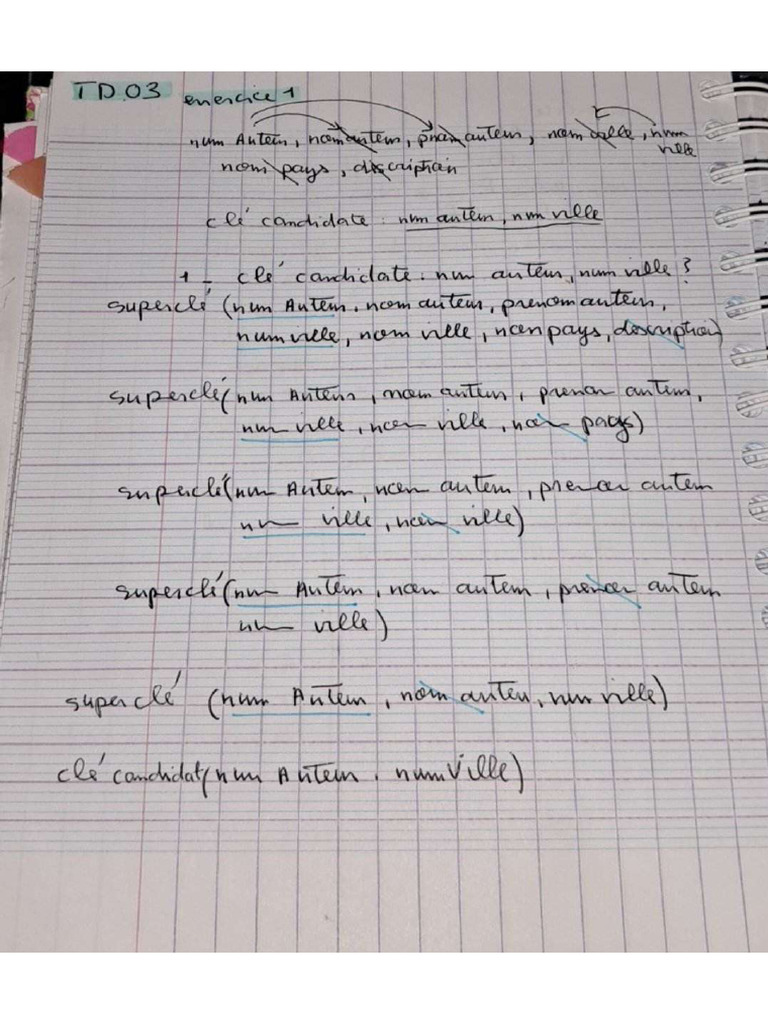 TD.03 exercice 1
num Auteur, nom auteur, prénom auteur, nom ville, num
ville
nom pays, discription
clé candidate : num auteur, num ville
1 - clé candidate : num auteur, num ville ?
superclé (num Auteur, nom auteur, prenom auteur,
num ville, nom ville, nom pays, discription)
superclé (num Auteur, nom auteur, prenom auteur,
num ville, nom ville, nom pays)
superclé (num Auteur, nom auteur, prenom auteur
num ville, nom ville)
superclé (num Auteur, nom auteur, prenom auteur
num ville)
superclé (num Auteur, nom auteur, num ville)
clé candidat (num Auteur, num Ville)